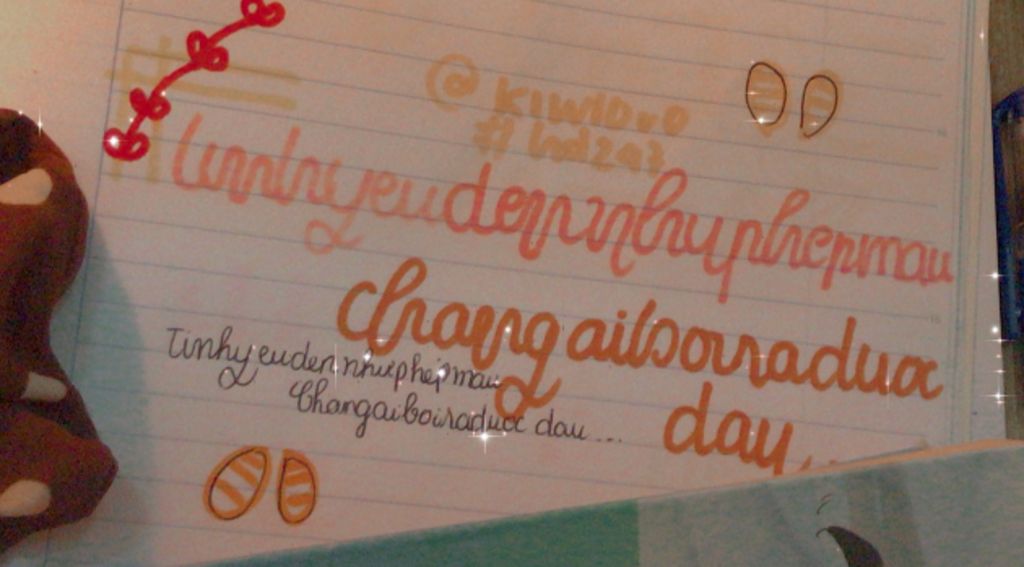 @KIWIDuo
#hd2a7
tinhyeudennhuphepmau
changaiboiraduoc
day...
Tinhyeudennhuphepmau
Changaiboiraduoc dau...